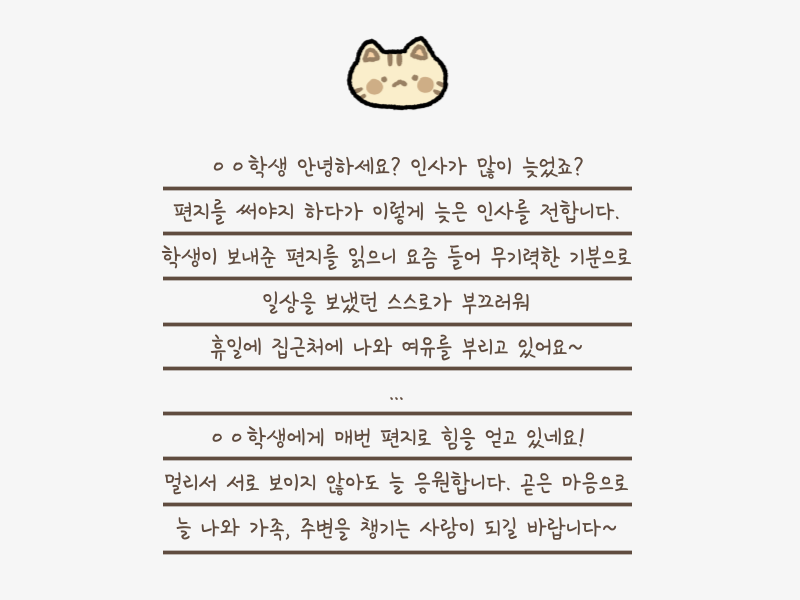 ㅇㅇ학생 안녕하세요? 인사가 많이 늦었죠?
편지를 써야지 하다가 이렇게 늦은 인사를 전합니다.
학생이 보내준 편지를 읽으니 요즘 들어 무기력한 기분으로
일상을 보냈던 스스로가 부끄러워
휴일에 집근처에 나와 여유를 부리고 있어요~
...
ㅇㅇ학생에게 매번 편지로 힘을 얻고 있네요!
멀리서 서로 보이지 않아도 늘 응원합니다. 곧은 마음으로
늘 나와 가족, 주변을 챙기는 사람이 되길 바랍니다~